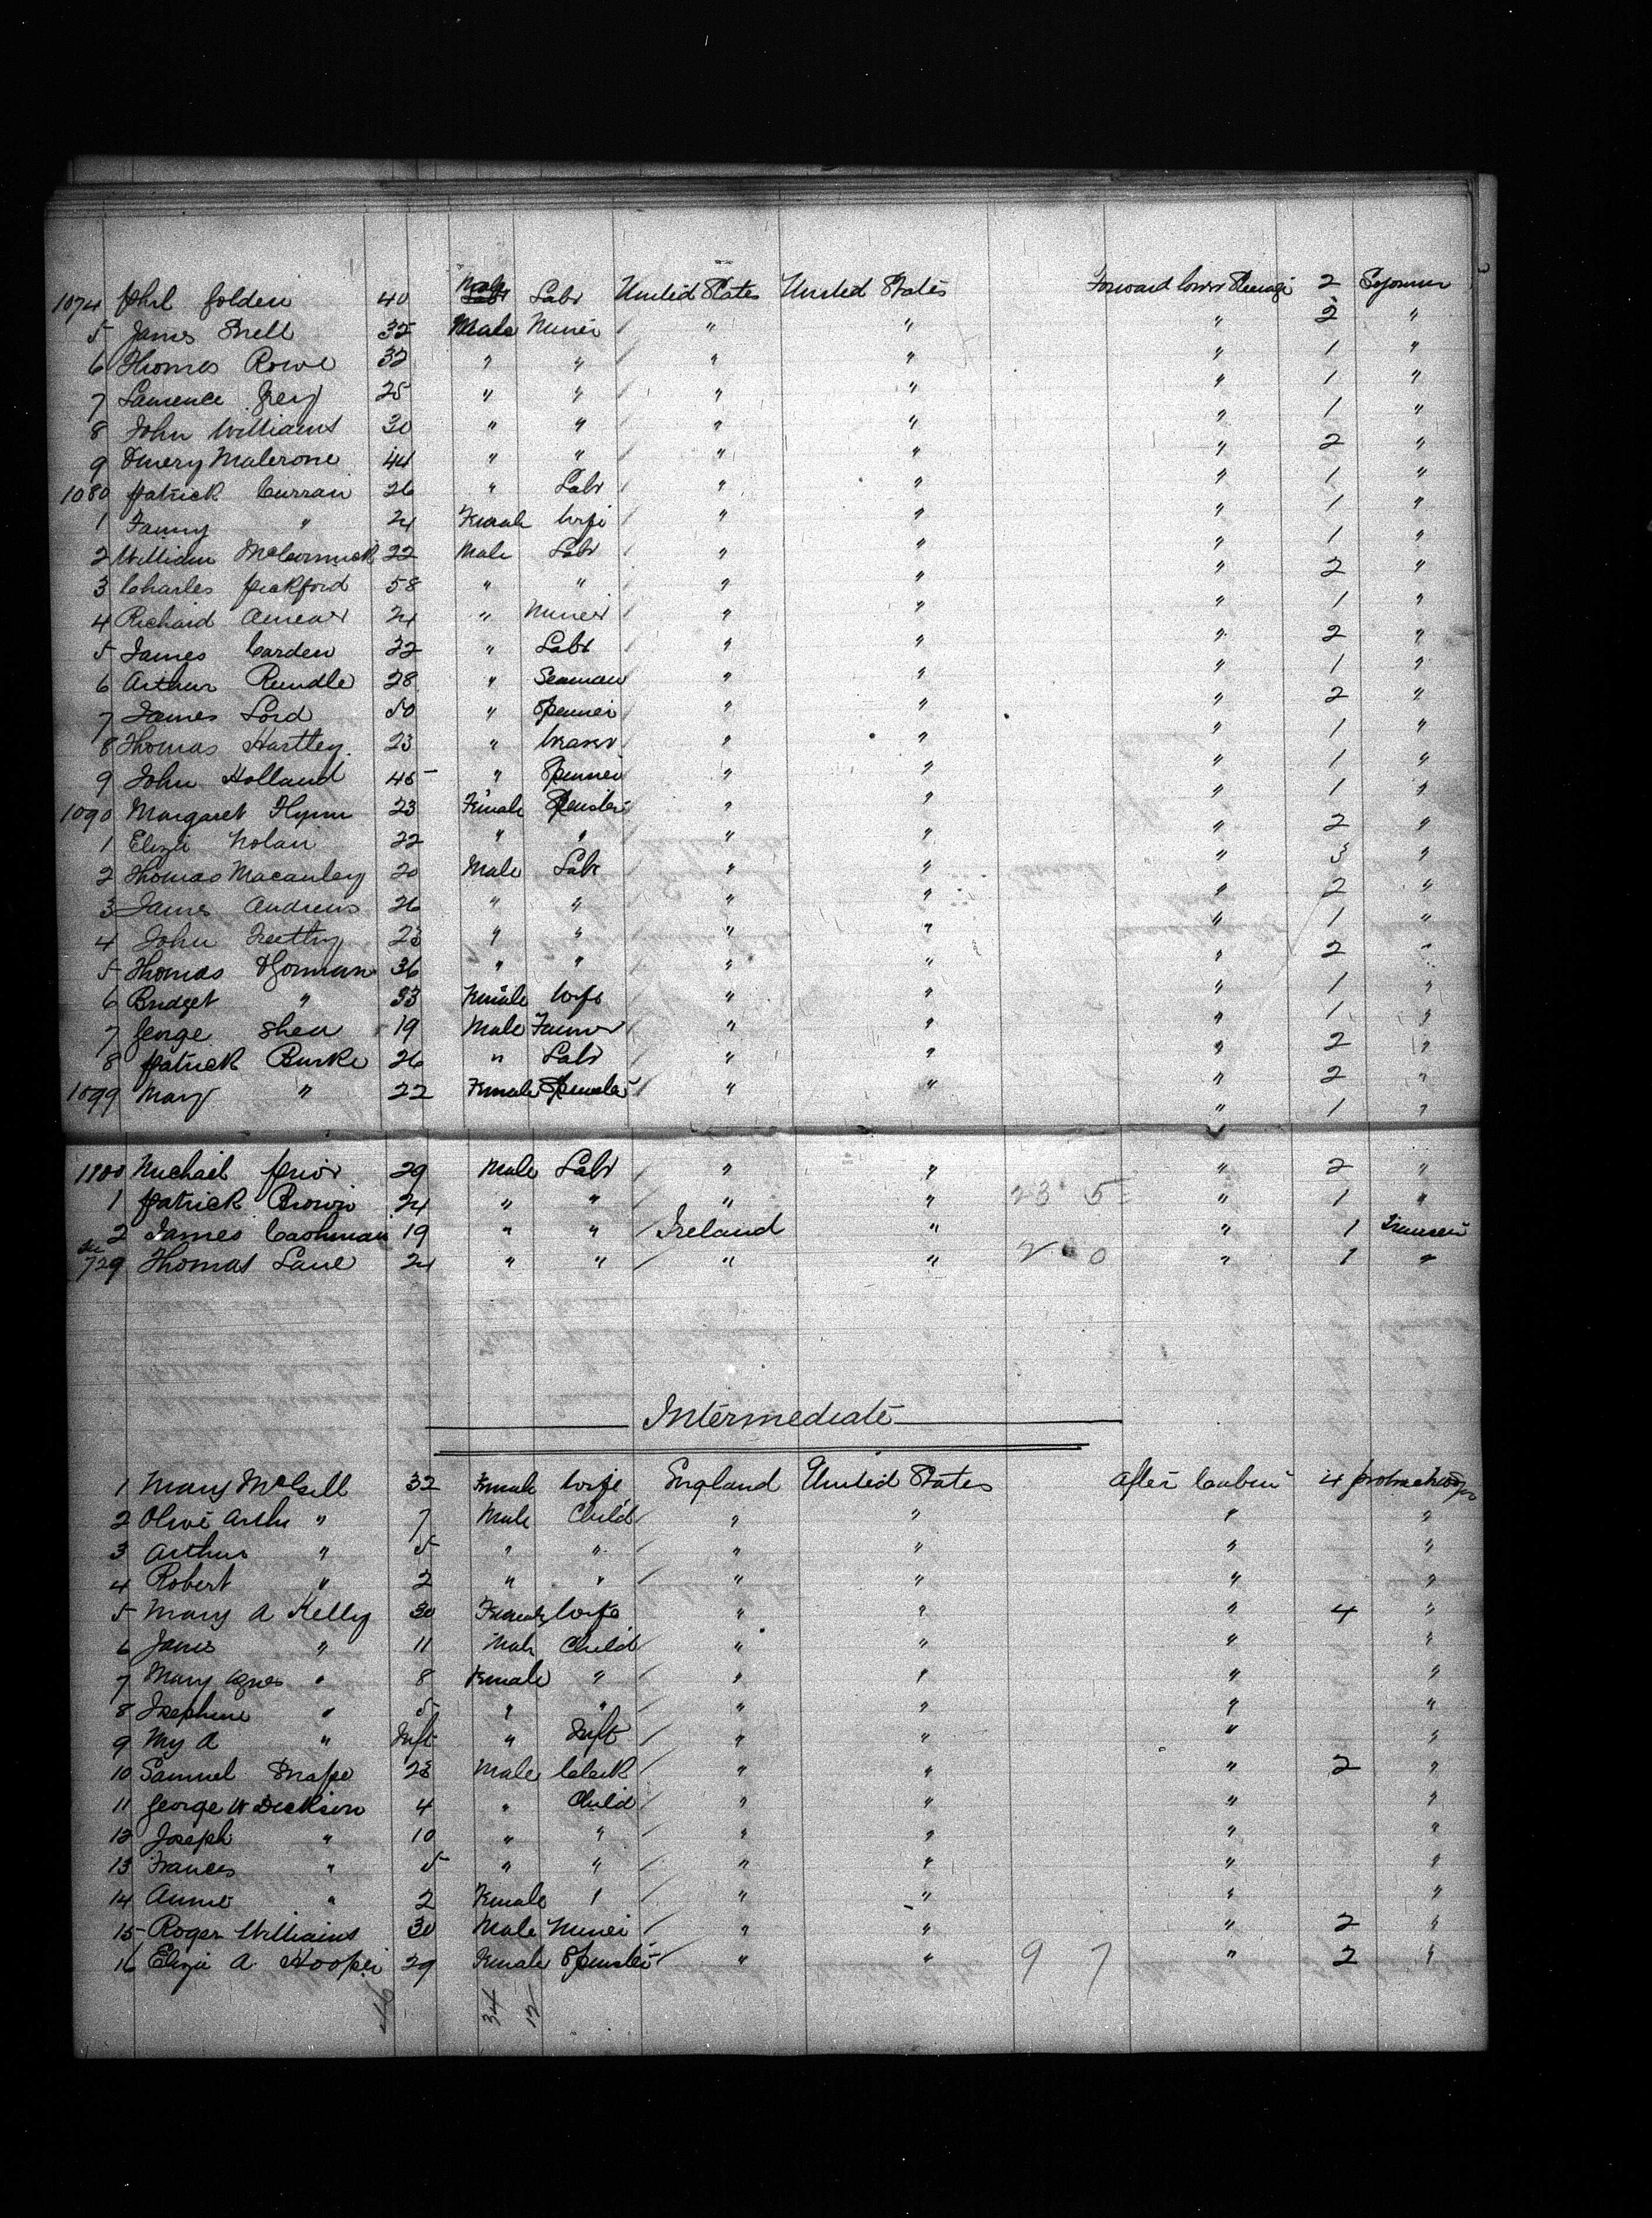 1074 Phil Golden 40 Male Labr United States United States Forward Lower Steerage 2 Sojourner
5 James Snell 35 Male Miner / " " " 2 "
6 Thomas Rowe 32 " " / " " " 1 "
7 Laurence Grey 25 " " / " " " 1 "
8 John Williams 30 " " / " " " 1 "
9 Emery Malerone 44 " " / " " " 2 "
1080 Patrick Curran 26 " Labr / " " " 1 "
1 Fanny " 24 Female Wife / " " " 1 "
2 William McCormick 22 Male Labr / " " " 1 "
3 Charles Pickford 58 " " / " " " 2 "
4 Richard 24 " Miner / " " " 1 "
5 James Carden 32 " Labr / " " " 2 "
6 Arthur Rundle 28 " Seaman / " " " 1 "
7 James Lord 50 " Spinner / " " " 2 "
8 Thomas Hartley 23 " / " " " 1 "
9 John Holland 45 " Spinner / " " " 1 "
1090 Margaret Flynn 23 Female Spinster / " " " 1 "
1 Eliza Nolan 22 " " / " " " 2 "
2 Thomas Macauley 20 Male Labr / " " " 3 "
3 James Andrews 26 " " / " " " 2 "
4 John 23 " " / " " " 1 "
5 Thomas OGorman 36 " " / " " " 2 "
6 Bridget " 33 Female Wife / " " " 1 "
7 George Shea 19 Male Farmer / " " " 1 "
8 Patrick Burke 26 " Labr / " " " 2 "
1099 Mary " 22 Female Spinster / " " " 2 "
" 1 "
1100 Michael Prior 29 Male Labr / " " " 2 "
1 Patrick Brown 24 " " / " " 23 5 " 1 "
2 James Cashman 19 " " / Ireland " " 1
729 Thomas Lane 24 " " / " " 2 0 " 1 "
Intermediate
1 Mary McGill 32 Female Wife England United States After Cabin 4
2 Olive " 7 Male Child / " " " "
3 Arthur " 5 " " / " " " "
4 Robert " 2 " " / " " " "
5 Mary A Kelly 30 Female Wife " " " 4 "
6 James " 11 Male Child / " " " "
7 Mary Agnes " 8 Female " / " " " "
8 Josephine " 5 " " / " " " "
9 My A " Inft " Inft / " " " "
10 Samuel Snape 23 Male Clerk / " " " 2 "
11 George W Dickson 4 " Child / " " " "
12 Joseph " 10 " " / " " " "
13 Frances " 5 " " / " " " "
14 Annie " 2 Female " / " " " "
15 Roger Williams 30 Male Miner / " " " 2 "
16 Eliza A Hooper 29 Female Spinster / " " 9 7 " 2 "
46 34 12